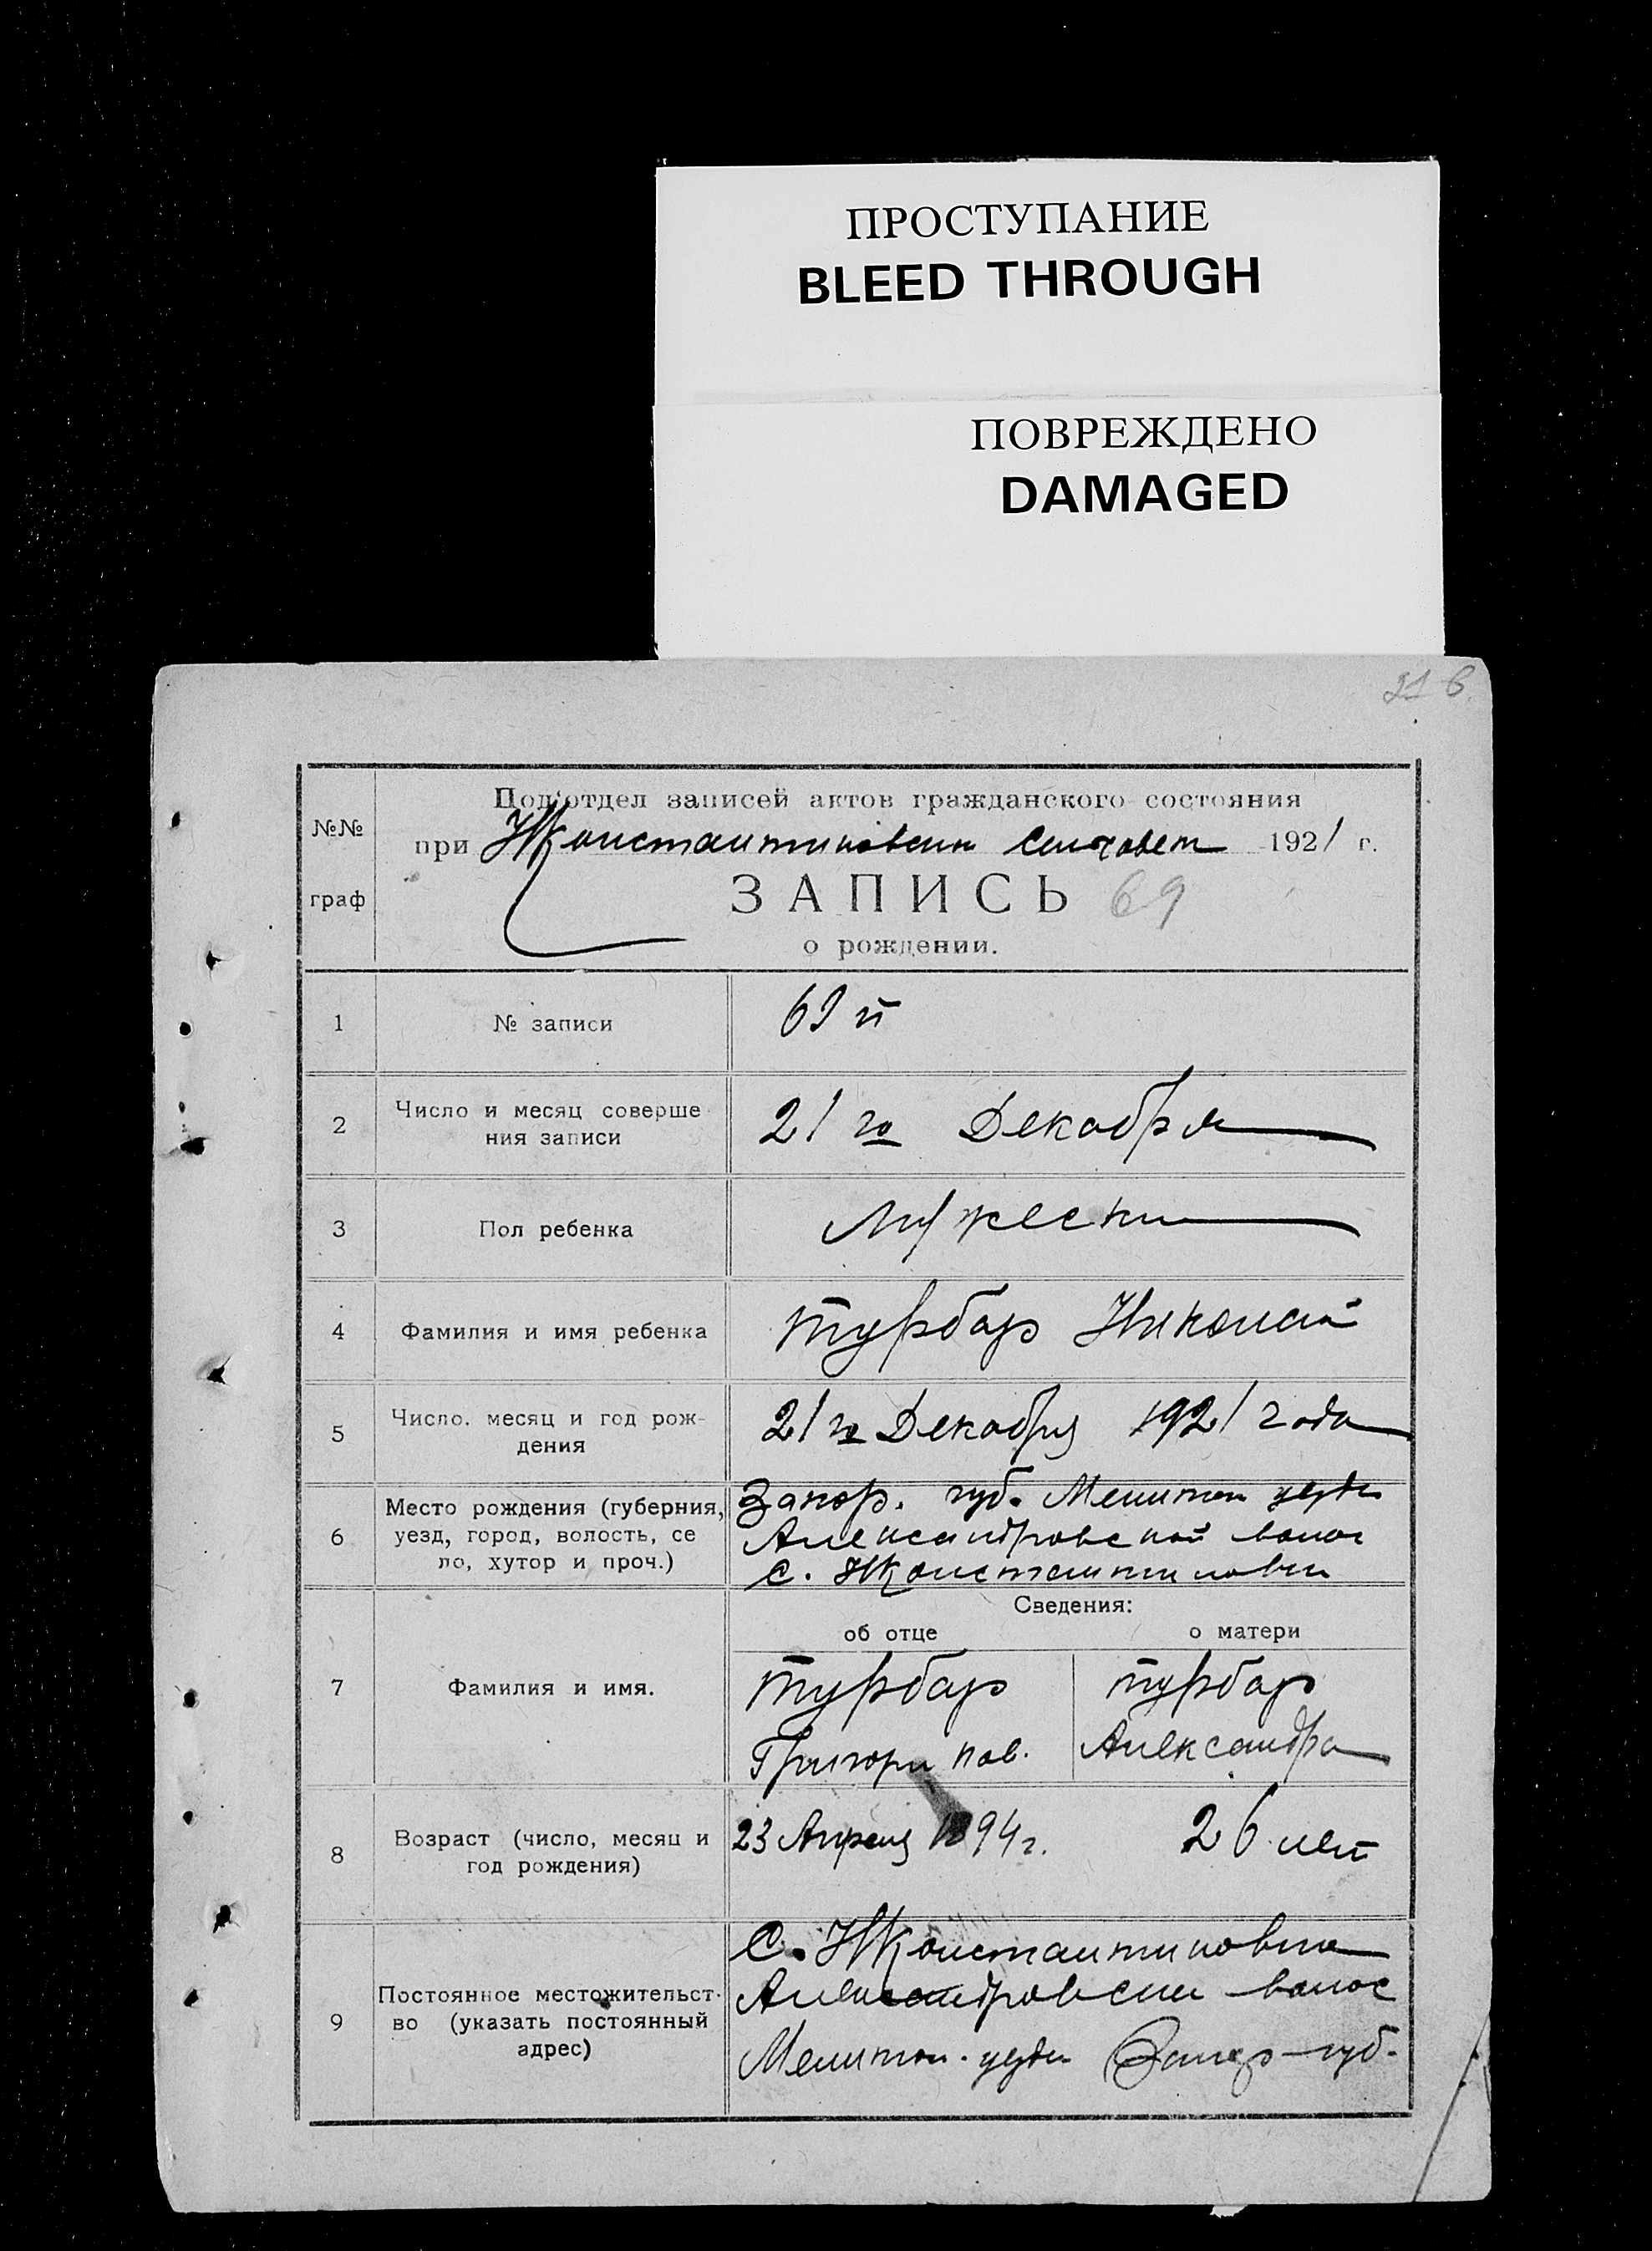 ПРОСТУПАНИЕ
BLEED THROUGH
ПОВРЕЖДЕНО
DAMAGED
Подотдел записей актов гражданского состояния
№№
при НКонстантиновском 1921 г.
граф
ЗАПИСЬ 69
о рождении.
1 № записи 69 й
2 Число и месяц соверше
ния записи 21 го Декабря
3 Пол ребенка Мужески
4 Фамилия и имя ребенка Турбар Николай
5 Число. месяц и год рож-
дения 21 го Декабря 1921 года
6 Место рождения (губерния,
уезд, город, волость, се
ло, хутор и проч.)
Запор. губ. Мелитоп уезда
Александровской волос
с. НКонстантиновки
Сведения:
об отце о матери
7 Фамилия и имя.
Турбар Турбар
Григори Пав. Александра
8 Возраст (число, месяц и
год рождения)
23 Апреля 1894 г. 26 лет
9 Постоянное местожительст-
во (указать постоянный
адрес)
С. НКонстантиновка
Александровски волос
Мелитоп. уезда Запор губ.